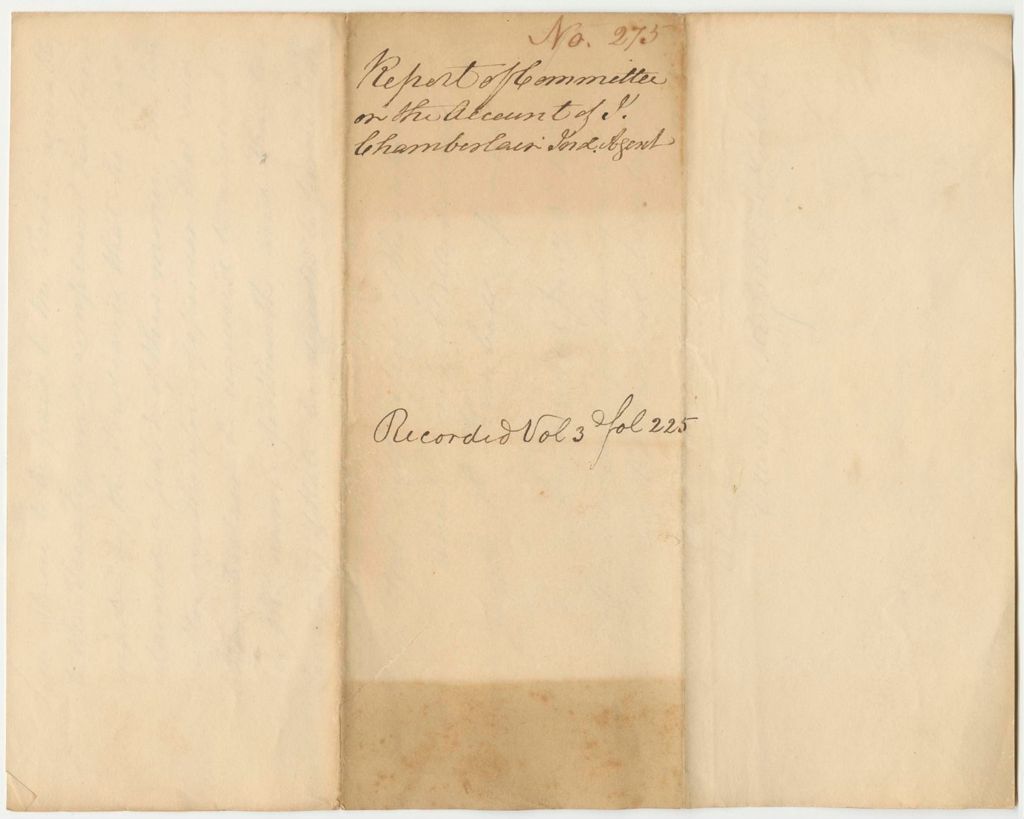 No. 275
Report of Committee
on the Account of J.
Chamberlain Ind. Agent
Recorded Vol 3 fol 225